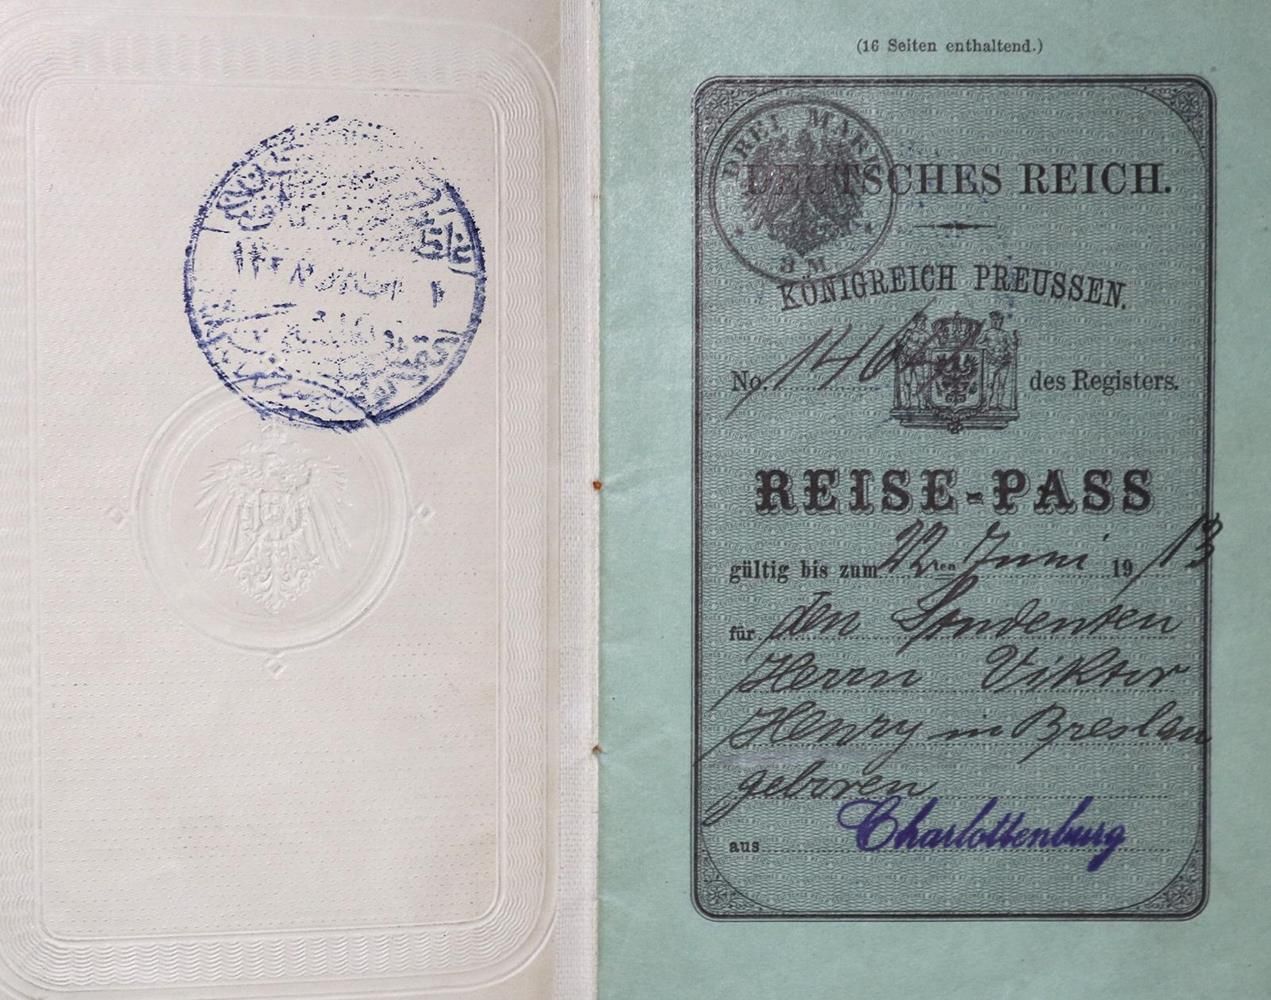 غلطه
(16 Seiten enthaltend.)
DREI MARK
3 M
DEUTSCHES REICH.
KÖNIGREICH PREUSSEN.
No. 146 des Registers.
REISE-PASS
gültig bis zum 22ten Juni 1913
für den Studenten
Herrn Viktor
Henry in Breslau
geboren
aus Charlottenburg